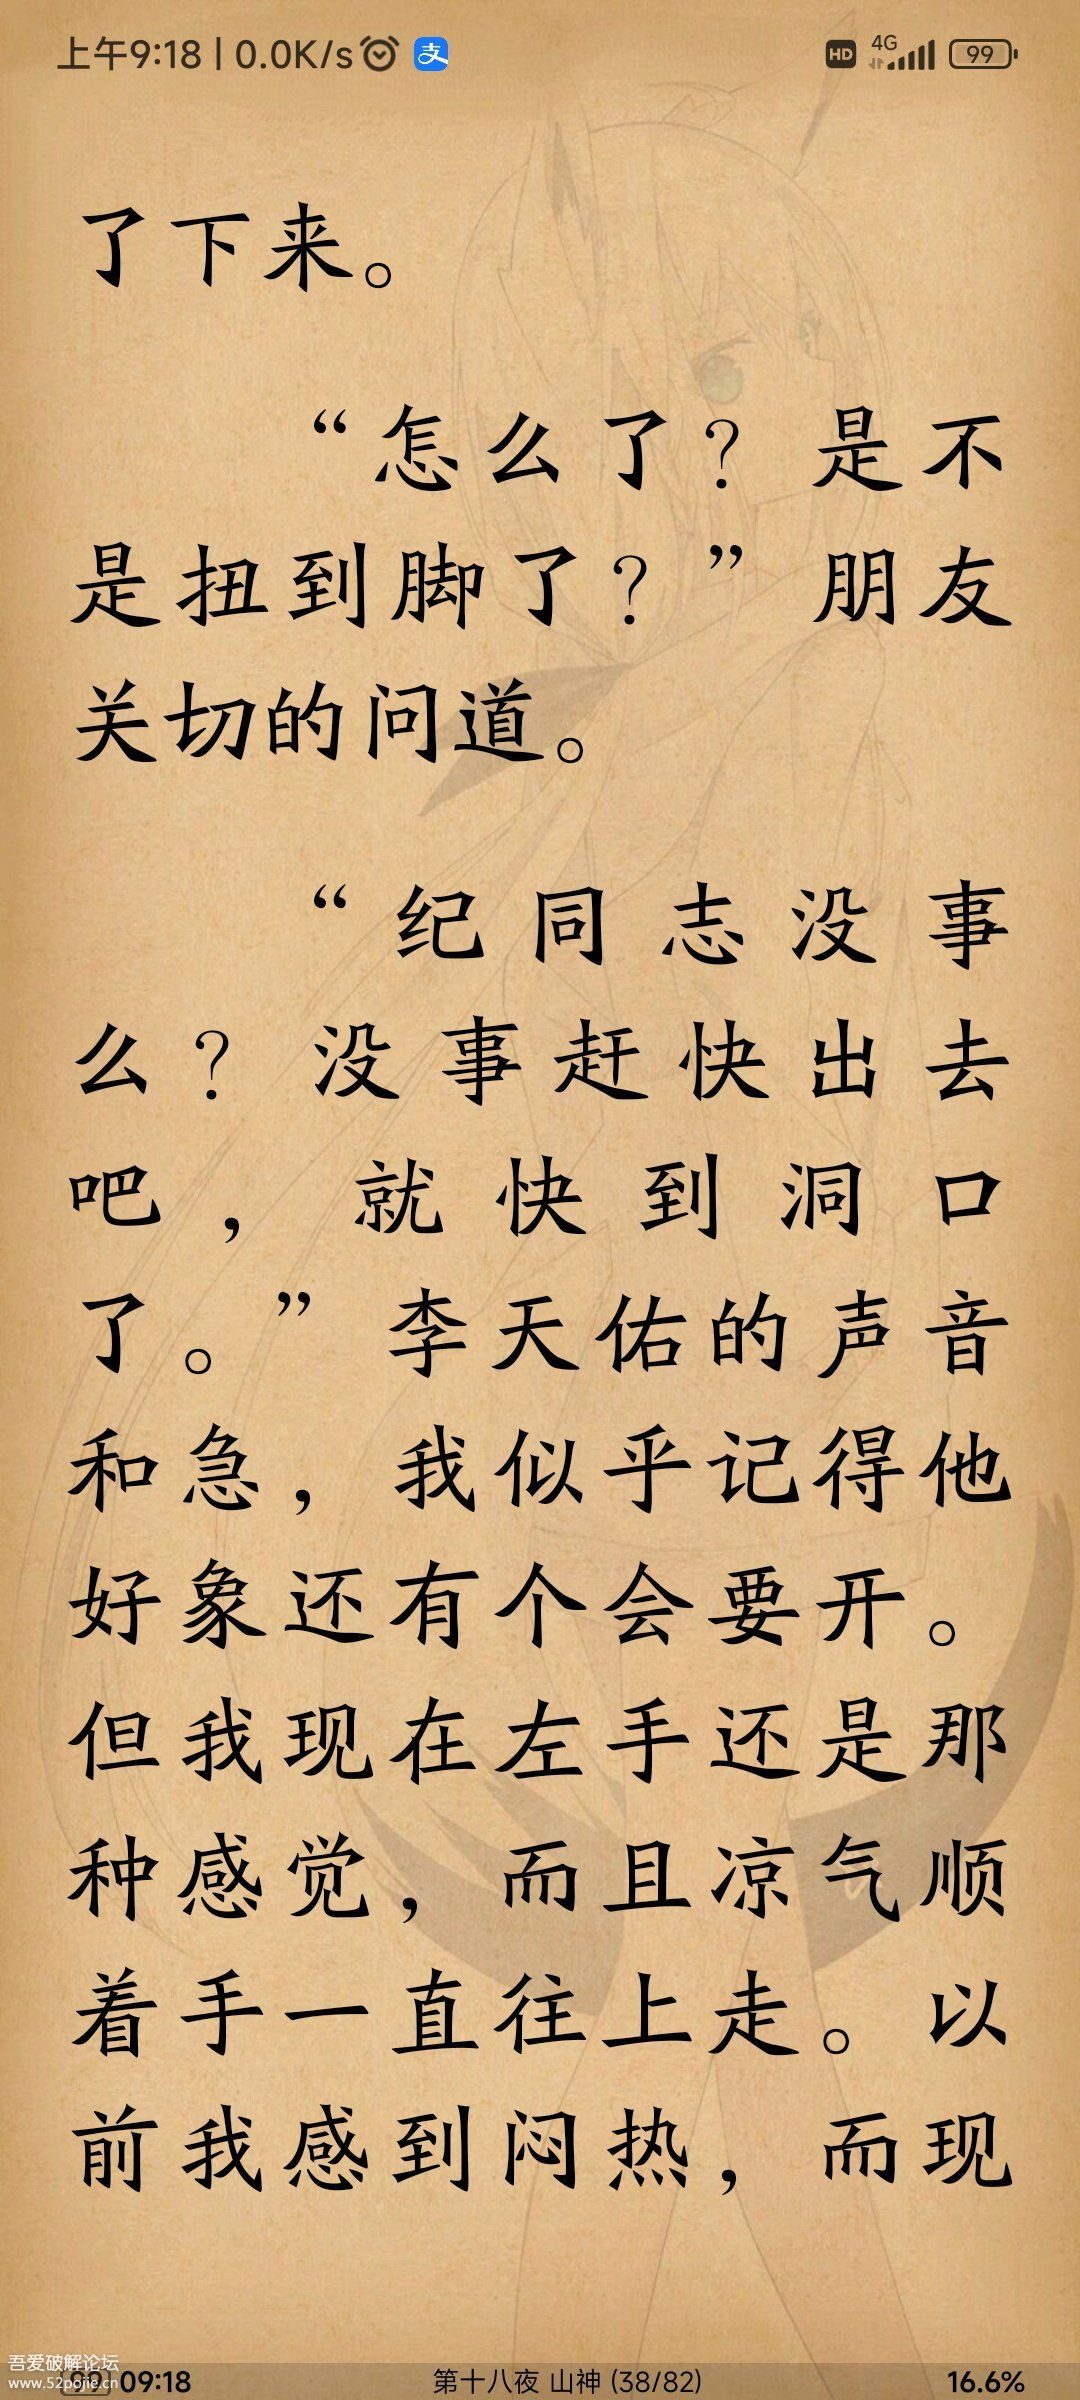 上午9:18 | 0.0K/s 支 HD 4G 99
了下来。
“怎么了？是不
是扭到脚了？”朋友
关切的问道。
“纪同志没事
么？没事赶快出去
吧，就快到洞口
了。”李天佑的声音
和急，我似乎记得他
好象还有个会要开。
但我现在左手还是那
种感觉，而且凉气顺
着手一直往上走。以
前我感到闷热，而现
吾爱破解论坛
www.52pojie.cn
99 09:18 第十八夜 山神 (38/82) 16.6%